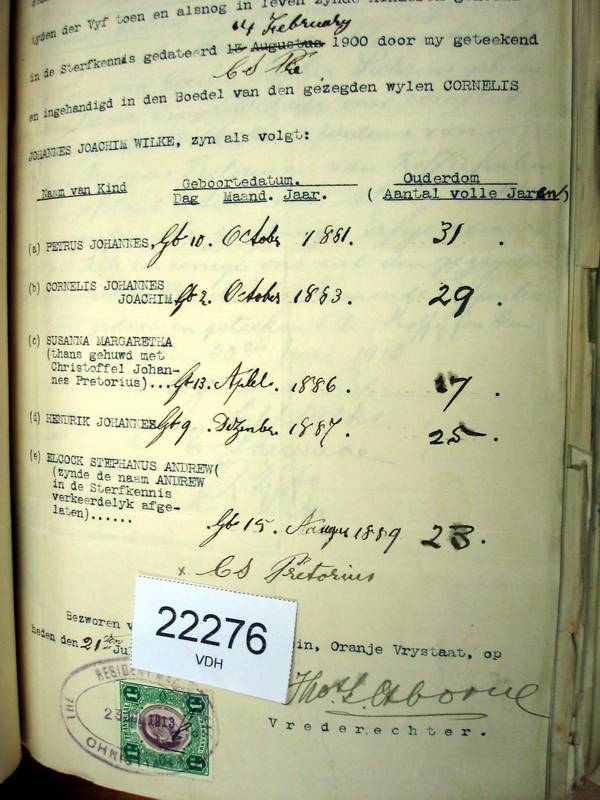 lyden der Vyf toen en alsnog in leven zynde
14 February
in de Sterfkennis gedateerd 13 Augustus 1900 door my geteekend
C S
en ingehandigd in den Boedel van den gezegden wylen CORNELIS
JOHANNES JOACHIM WILKE, zyn als volgt:
Naam van Kind Geboortedatum. Ouderdom
Dag Maand. Jaar. ( Aantal volle Jaren)
(a) PETRUS JOHANNES, Gb 10. October 1881. 31 .
(b) CORNELIS JOHANNES
JOACHIM Gb 2. October 1883. 29 .
(c) SUSANNA MARGARETHA
(thans gehuwd met
Christoffel Johan-
nes Pretorius)... Gb 13. April. 1886 . 27 .
(d) HENDRIK JOHANNES Gb 9 . Dezember 1887. 25 .
(e) ELCOCK STEPHANUS ANDREW(
(zynde de naam ANDREW
in de Sterfkennis
verkeerdelyk afge-
laten)......
Gb 15. 1889 23.
x C S Pretorius
Bezworen
22276
VDH
in, Oranje Vrystaat, op
heden den 21sten
Thos L Osborne
Vrederechter.
THE RESIDENT
1913
CHRISTIA